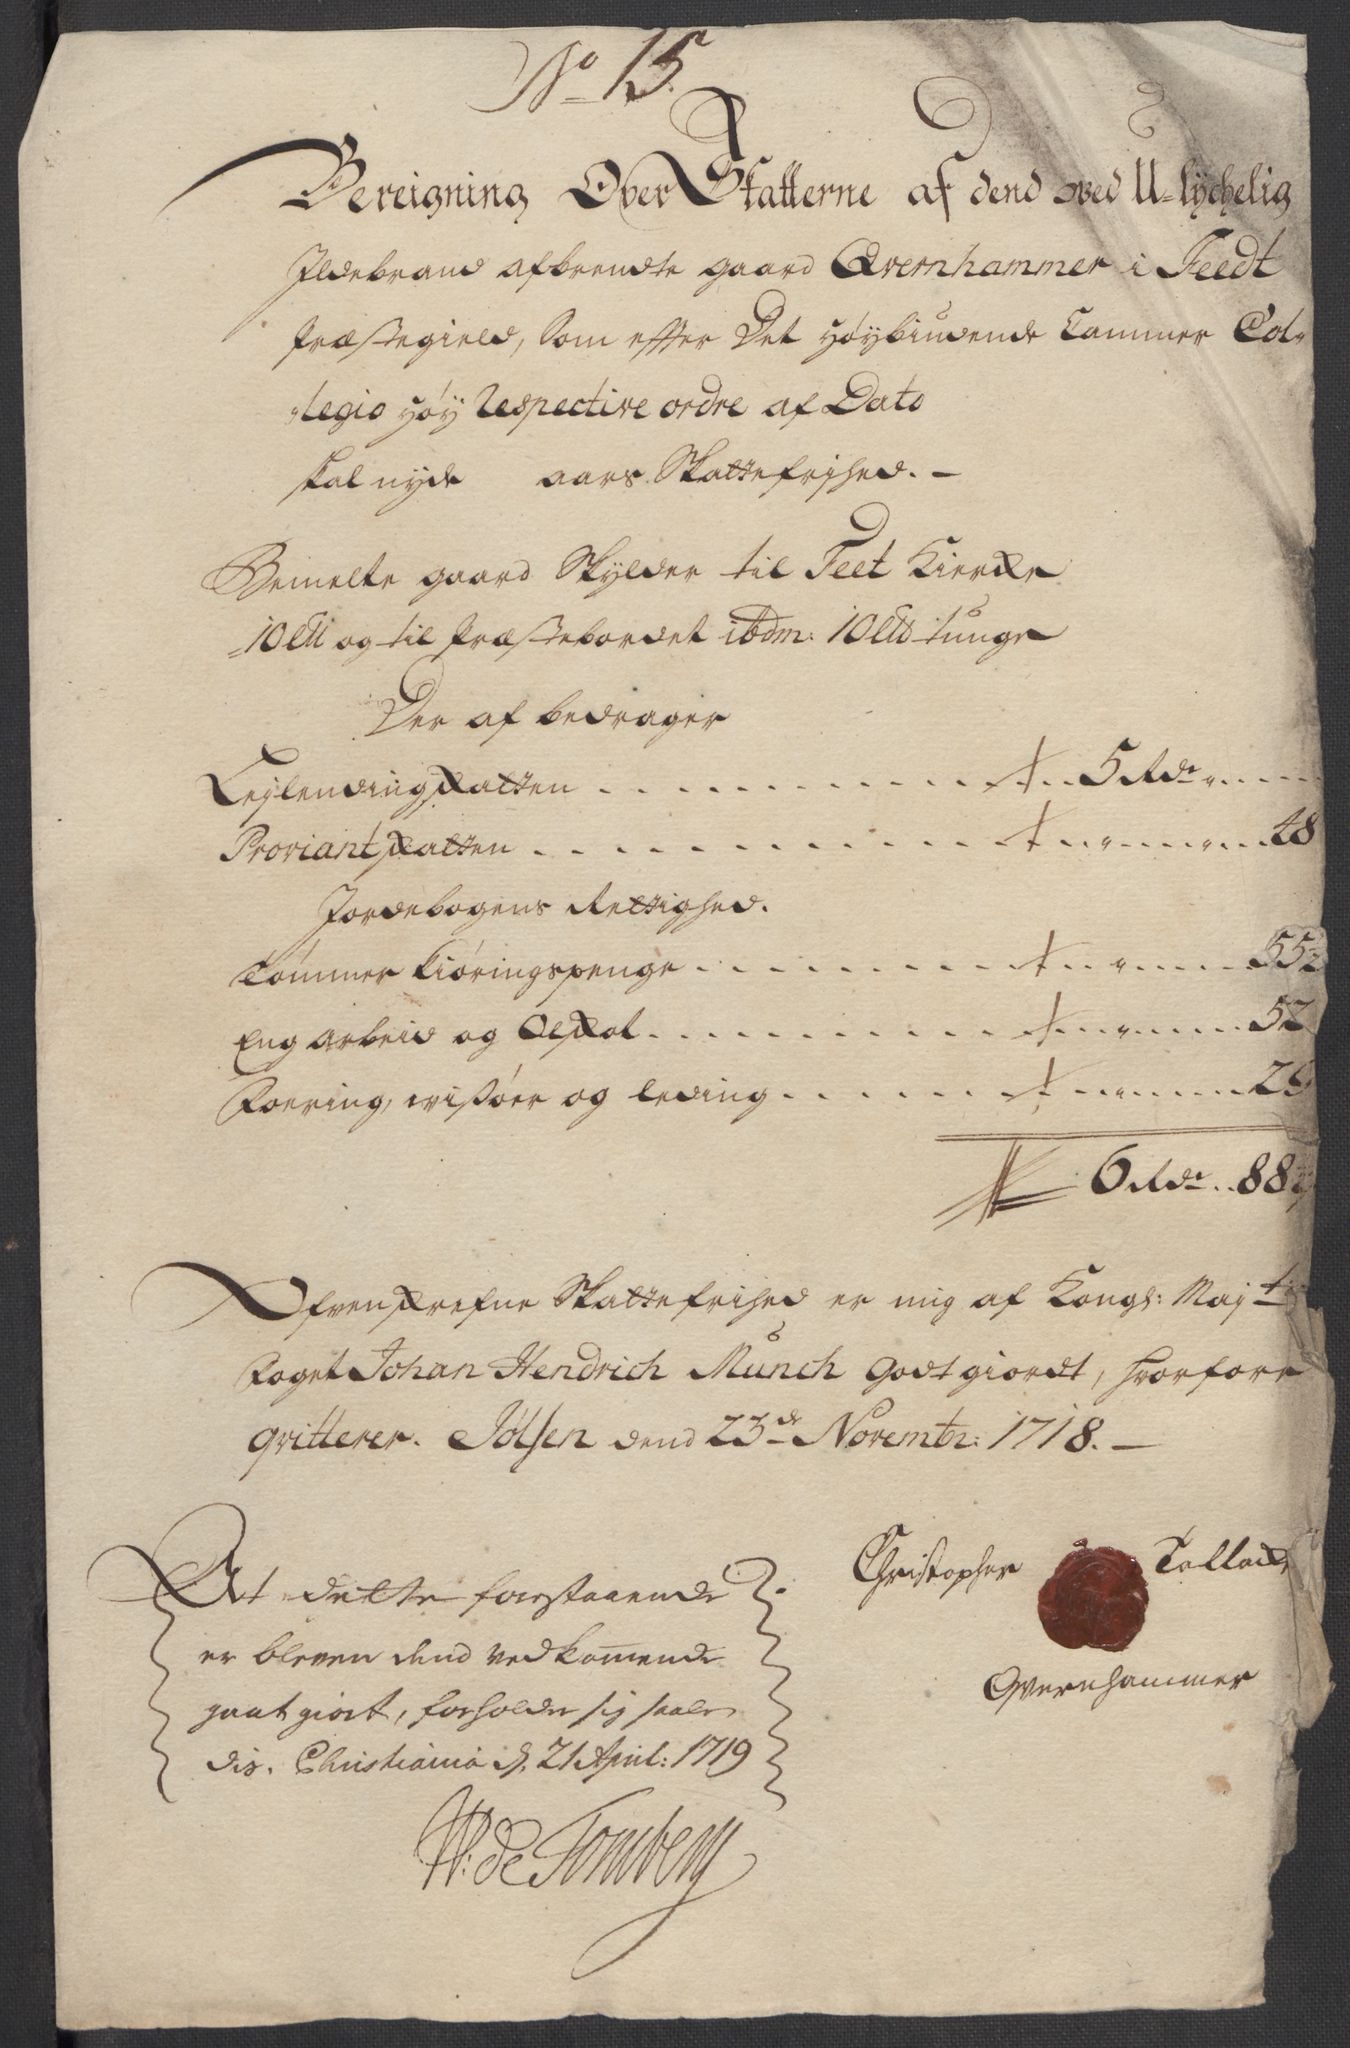 No 15.
Bereigning Over Skatterne af dend ved U-lychelig
Ildebrand afbrendte gaard Qvernhammer i Feedt
Præstegield, som effter Det høybiudende Cammer Col-
legio høy Respective ordre af Dato
skal nyde aars Skattefrihed. -
Bemelte gaard Skylder til Feet Kircke
10 Lb og til Præstebordet ibdm: 10 Lb tunge
Der af bedrager
Leylendingskatten . . . 5 Rdr
Proviantskatten . . . 48
Jordebogens Rettighed.
Tømmer kiøringspenge . . . 55½
Eng arbeid og . . . 52
Foering, visøer og leding . . . 29
6 Rdr. 88½
Ofvenskrefne Skattefrihed er mig af Kongl: Mayts
Foget Johan Hendrich Munch Godtgiordt, hvorfore
qvitterer. Sølsen dend 23de Novembr: 1718. -
Christopher Tollack
Qvernhammer
At dette forstaaende
er bleven dend vedkommende
gaatgiort, forholder sig saale
dis. Christiania d. 21 April: 1719
W: de Tonsberg